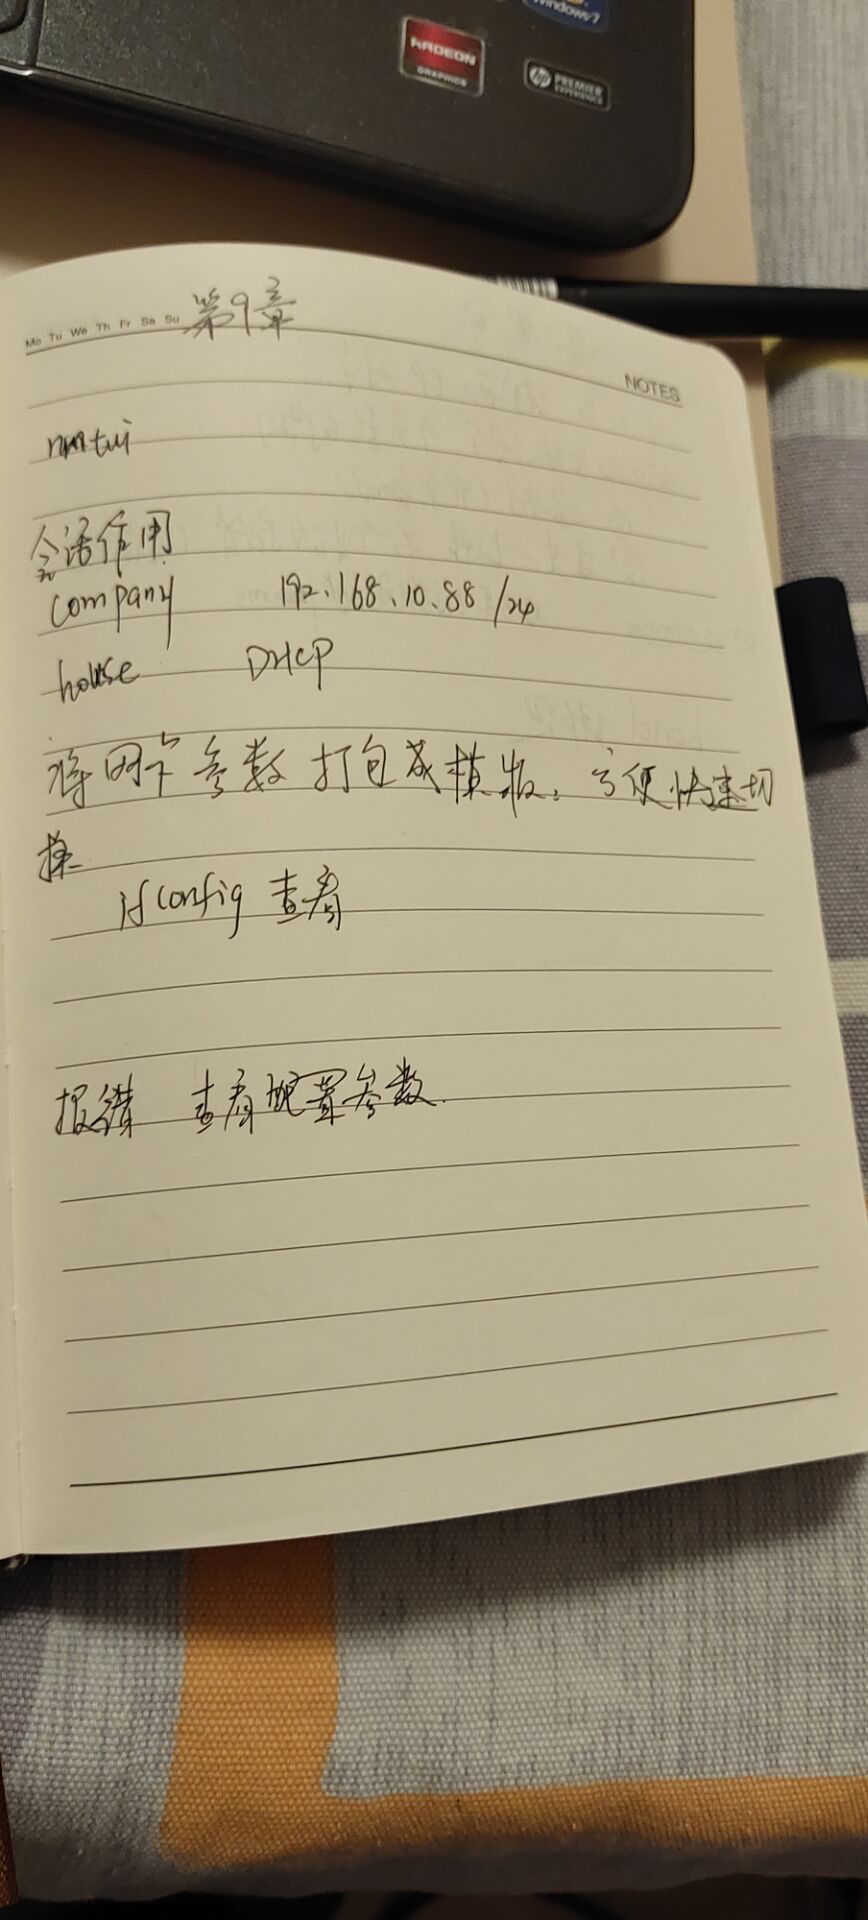 Windows 7
RADEON
GRAPHICS
hp PREMIER
EXPERIENCE
Mo Tu We Th Fr Sa Su 第9章
NOTES
nmtui
会话作用
company 192.168.10.88/24
house DHCP
将网卡参数打包成模板,方便快速切
换
ifconfig 查看
报错 查看配置参数.